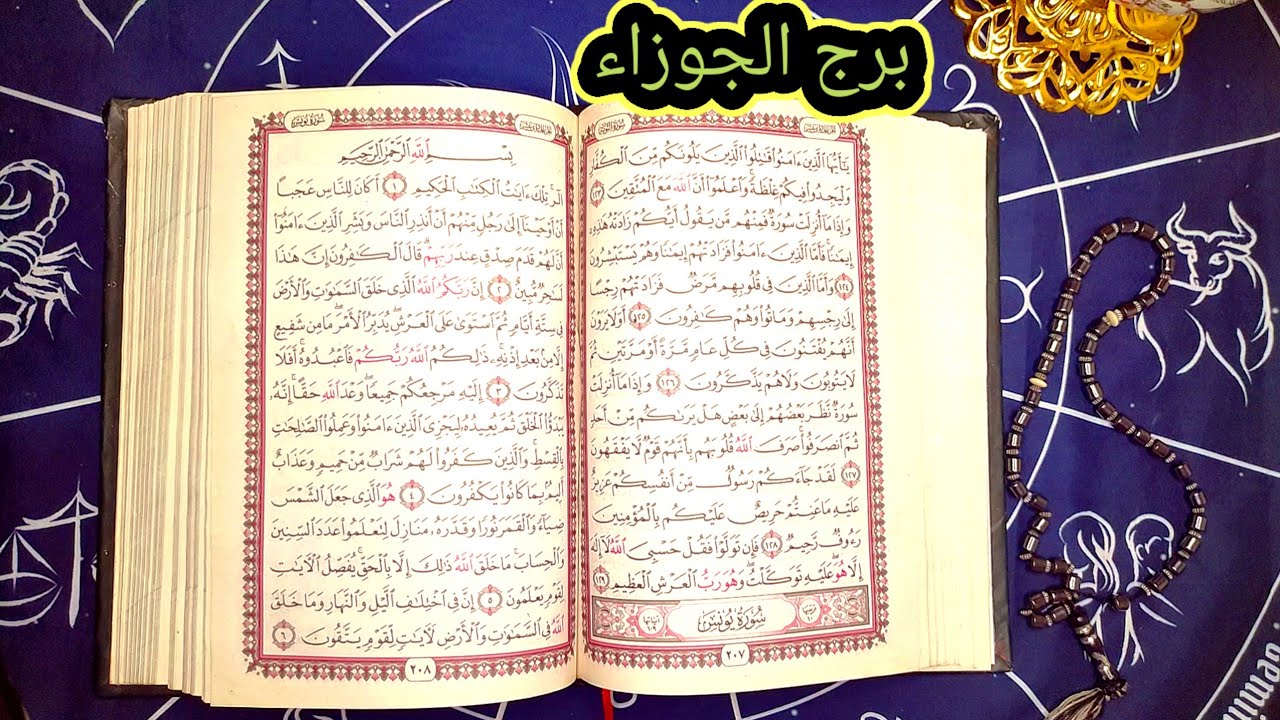 برج الجوزاء
الجزء الحادي عشر سورة التوبة
يَٰٓأَيُّهَا ٱلَّذِينَ ءَامَنُوا۟ قَٰتِلُوا۟ ٱلَّذِينَ يَلُونَكُم مِّنَ ٱلْكُفَّارِ
وَلْيَجِدُوا۟ فِيكُمْ غِلْظَةً ۚ وَٱعْلَمُوٓا۟ أَنَّ ٱللَّهَ مَعَ ٱلْمُتَّقِينَ ١٢٣
وَإِذَا مَآ أُنزِلَتْ سُورَةٌ فَمِنْهُم مَّن يَقُولُ أَيُّكُمْ زَادَتْهُ هَٰذِهِۦٓ
إِيمَٰنًا ۚ فَأَمَّا ٱلَّذِينَ ءَامَنُوا۟ فَزَادَتْهُمْ إِيمَٰنًا وَهُمْ يَسْتَبْشِرُونَ
١٢٤ وَأَمَّا ٱلَّذِينَ فِى قُلُوبِهِم مَّرَضٌ فَزَادَتْهُمْ رِجْسًا
إِلَىٰ رِجْسِهِمْ وَمَاتُوا۟ وَهُمْ كَٰفِرُونَ ١٢٥ أَوَلَا يَرَوْنَ
أَنَّهُمْ يُفْتَنُونَ فِى كُلِّ عَامٍ مَّرَّةً أَوْ مَرَّتَيْنِ ثُمَّ
لَا يَتُوبُونَ وَلَا هُمْ يَذَّكَّرُونَ ١٢٦ وَإِذَا مَآ أُنزِلَتْ
سُورَةٌ نَّظَرَ بَعْضُهُمْ إِلَىٰ بَعْضٍ هَلْ يَرَىٰكُم مِّنْ أَحَدٍ
ثُمَّ ٱنصَرَفُوا۟ ۚ صَرَفَ ٱللَّهُ قُلُوبَهُم بِأَنَّهُمْ قَوْمٌ لَّا يَفْقَهُونَ
١٢٧ لَقَدْ جَآءَكُمْ رَسُولٌ مِّنْ أَنفُسِكُمْ عَزِيزٌ
عَلَيْهِ مَا عَنِتُّمْ حَرِيصٌ عَلَيْكُم بِٱلْمُؤْمِنِينَ
رَءُوفٌ رَّحِيمٌ ١٢٨ فَإِن تَوَلَّوْا۟ فَقُلْ حَسْبِىَ ٱللَّهُ لَآ إِلَٰهَ
إِلَّا هُوَ ۖ عَلَيْهِ تَوَكَّلْتُ ۖ وَهُوَ رَبُّ ٱلْعَرْشِ ٱلْعَظِيمِ ١٢٩
ترتيبها ١٠ سُورَةُ يُونُسَ آياتها ١٠٩
٢٠٧
الجزء الحادي عشر سورة يونس
بِسْمِ ٱللَّهِ ٱلرَّحْمَٰنِ ٱلرَّحِيمِ
الٓر ۚ تِلْكَ ءَايَٰتُ ٱلْكِتَٰبِ ٱلْحَكِيمِ ١ أَكَانَ لِلنَّاسِ عَجَبًا
أَنْ أَوْحَيْنَآ إِلَىٰ رَجُلٍ مِّنْهُمْ أَنْ أَنذِرِ ٱلنَّاسَ وَبَشِّرِ ٱلَّذِينَ ءَامَنُوٓا۟
أَنَّ لَهُمْ قَدَمَ صِدْقٍ عِندَ رَبِّهِمْ ۗ قَالَ ٱلْكَٰفِرُونَ إِنَّ هَٰذَا
لَسَٰحِرٌ مُّبِينٌ ٢ إِنَّ رَبَّكُمُ ٱللَّهُ ٱلَّذِى خَلَقَ ٱلسَّمَٰوَٰتِ وَٱلْأَرْضَ
فِى سِتَّةِ أَيَّامٍ ثُمَّ ٱسْتَوَىٰ عَلَى ٱلْعَرْشِ ۖ يُدَبِّرُ ٱلْأَمْرَ ۖ مَا مِن شَفِيعٍ
إِلَّا مِنۢ بَعْدِ إِذْنِهِۦ ۚ ذَٰلِكُمُ ٱللَّهُ رَبُّكُمْ فَٱعْبُدُوهُ ۚ أَفَلَا
تَذَكَّرُونَ ٣ إِلَيْهِ مَرْجِعُكُمْ جَمِيعًا ۖ وَعْدَ ٱللَّهِ حَقًّا ۚ إِنَّهُۥ
يَبْدَؤُا۟ ٱلْخَلْقَ ثُمَّ يُعِيدُهُۥ لِيَجْزِىَ ٱلَّذِينَ ءَامَنُوا۟ وَعَمِلُوا۟ ٱلصَّٰلِحَٰتِ
بِٱلْقِسْطِ ۚ وَٱلَّذِينَ كَفَرُوا۟ لَهُمْ شَرَابٌ مِّنْ حَمِيمٍ وَعَذَابٌ
أَلِيمٌۢ بِمَا كَانُوا۟ يَكْفُرُونَ ٤ هُوَ ٱلَّذِى جَعَلَ ٱلشَّمْسَ
ضِيَآءً وَٱلْقَمَرَ نُورًا وَقَدَّرَهُۥ مَنَازِلَ لِتَعْلَمُوا۟ عَدَدَ ٱلسِّنِينَ
وَٱلْحِسَابَ ۚ مَا خَلَقَ ٱللَّهُ ذَٰلِكَ إِلَّا بِٱلْحَقِّ ۚ يُفَصِّلُ ٱلْءَايَٰتِ
لِقَوْمٍ يَعْلَمُونَ ٥ إِنَّ فِى ٱخْتِلَٰفِ ٱلَّيْلِ وَٱلنَّهَارِ وَمَا خَلَقَ
ٱللَّهُ فِى ٱلسَّمَٰوَٰتِ وَٱلْأَرْضِ لَءَايَٰتٍ لِّقَوْمٍ يَتَّقُونَ ٦
٢٠٨